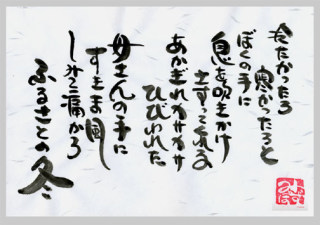 冷たかったろ
寒かったろうと
ぼくの手に
息を吹きかけ
さすってくれる
あかぎれカサカサ
ひびわれた
母さんの手に
すきま風
しみて痛かろ
ふるさとの冬